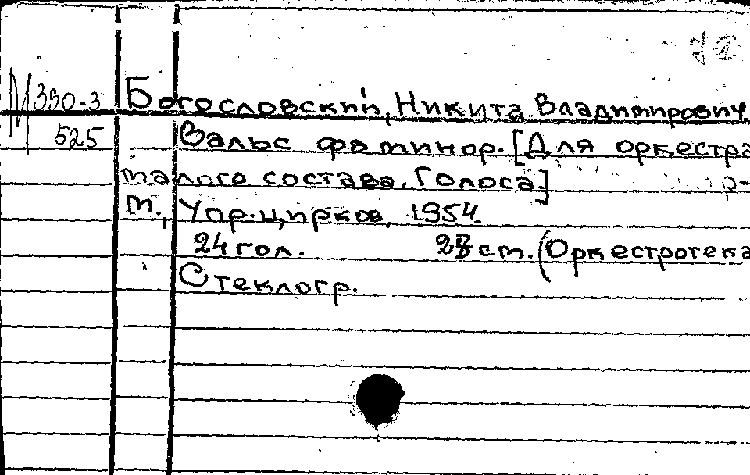 М 390-3 Богословский, Никита Владимирович.
525 Вальс фа минор. [Для оркестра
малого состава. Голоса]
М., Упр. цирков, 1954.
24 гол. см. (Оркестротека
Стеклогр.